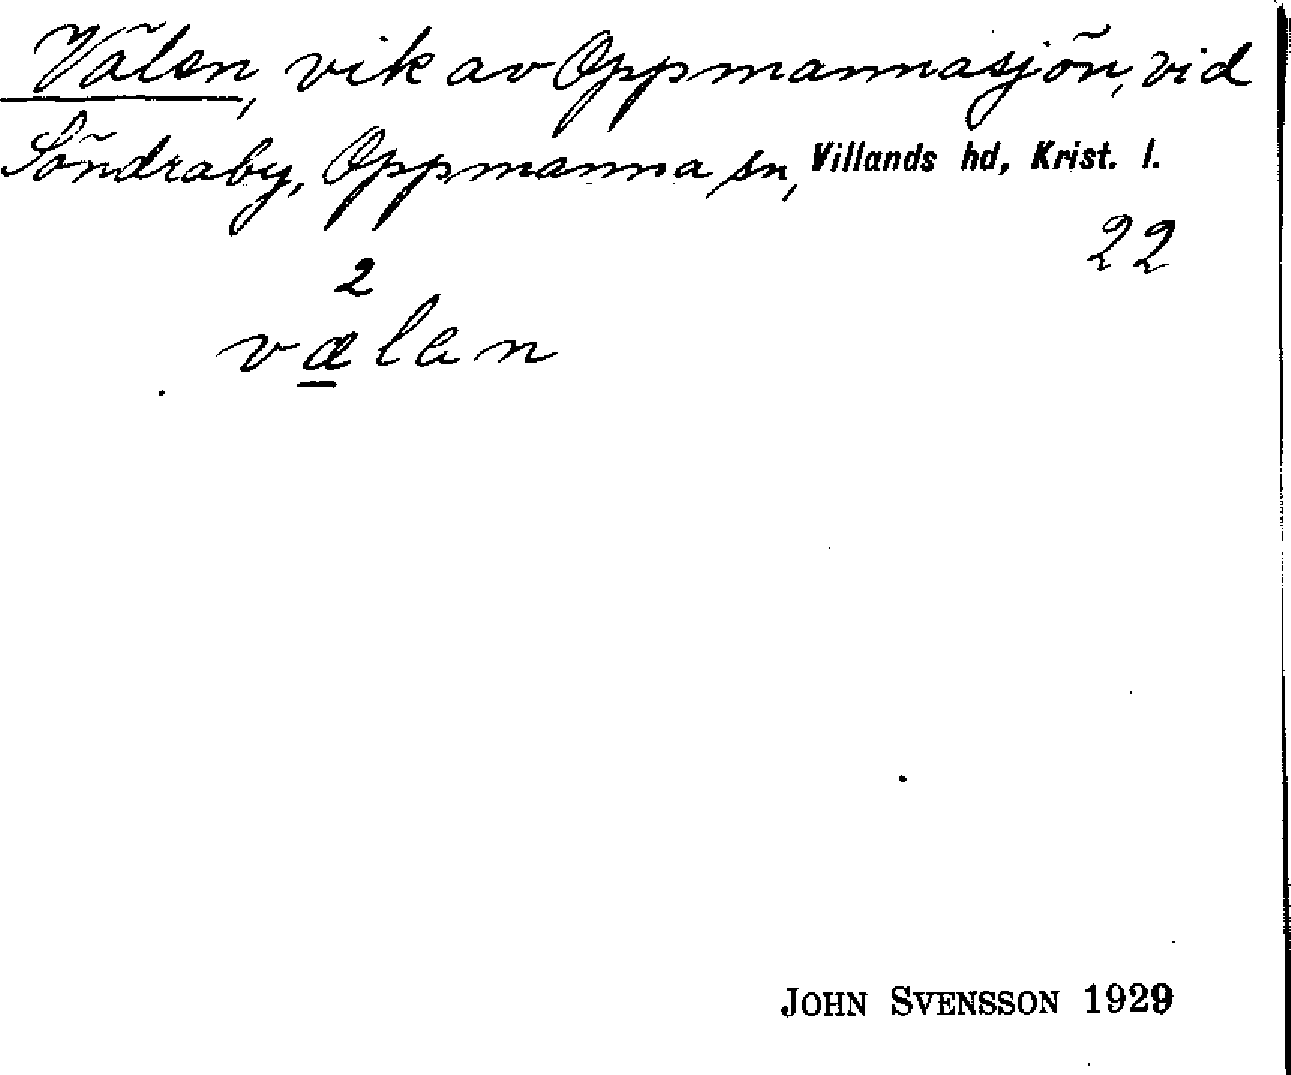 Välen, vik av Oppmannasjön, vid
Söndraby, Oppmanna sn, Villands hd, Krist. l.
22
2
vælen
JOHN SVENSSON 1929